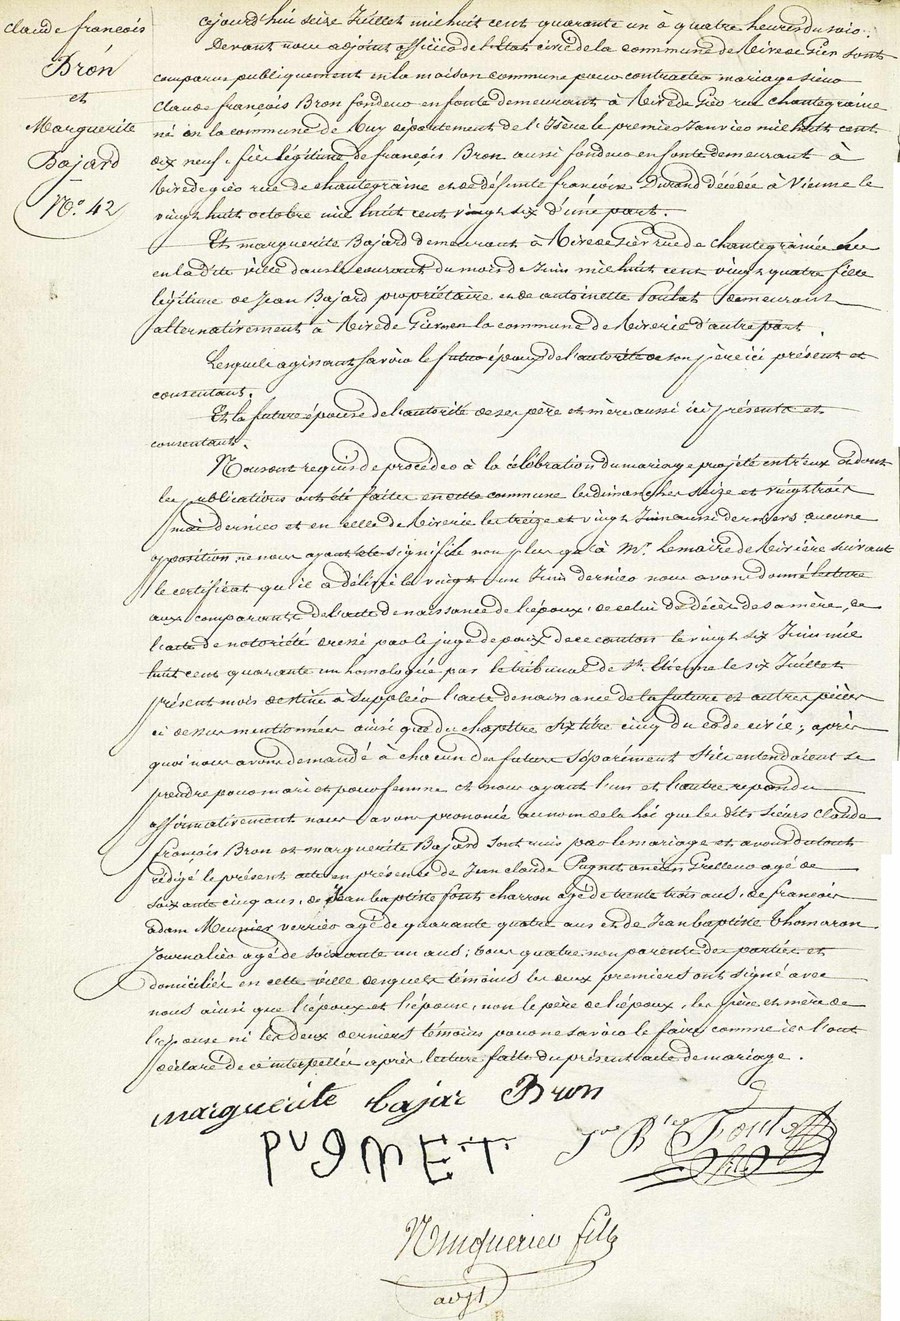 Claude françois
Bron
et
Marguerite
Bajard
N.º 42
cejourd'hui seize Juillet mil huit cent quarante un à quatre heures du soir.
Devant nous adjoint officier de l'Etat civil de la commune de Rive de Gier sont
comparus publiquement en la maison commune pour contracter mariage sieur
Claude françois Bron fondeur en fonte demeurant à Rive de Gier rue chantegraine
né en la commune de Huy département de l'Isère le premier Janvier mil huit cent
dix neuf, fils légitime de françois Bron aussi fondeur en fonte demeurant à
Rive de gier rue de chantegraine et de défunte françoise Durand décédée à Vienne le
vingt huit octobre mil huit cent vingt six d'une part.
Et marguerite Bajard demeurant à Rive de Gier rue de chantegraine née
en la dite ville dans le courant du mois de Juin mil huit cent vingt quatre fille
légitime de Jean Bajard propriétaire et de antoinette Poulat demeurant
alternativement à Rive de Gier et en la commune de Riverie d'autre part.
Lesquels agissant savoir le futur époux de l'autorité de son père ici présent et
consentant.
Et la future épouse de l'autorité de ses père et mère aussi ici présents et
consentants.
Nous ont requis de procéder à la célébration du mariage projeté entr'eux et dont
les publications ont été faites en cette commune les dimanches seize et vingt trois
mai dernier et en celle de Riverie les treize et vingt Juin aussi derniers aucune
opposition ne nous ayant été signifiée non plus qu'à Mr. Lemaire de Rivière suivant
le certificat qu'il a délivré le vingt un Juin dernier nous avons donné lecture
aux comparants de l'acte de naissance de l'époux, de celui de décès de sa mère, de
l'acte de notoriété dressé par le juge de paix de ce canton le vingt six Juin mil
huit cent quarante un homologué par le tribunal de St. Etienne le six Juillet
présent mois destiné à suppléer l'acte de naissance de la future et autres pièces
ci dessus mentionnées ainsi que du chapitre six titre cinq du code civil; après
quoi nous avons demandé à chacun des futurs séparément s'ils entendaient se
prendre pour mari et pour femme et nous ayant l'un et l'autre répondu
affirmativement nous avons prononcé au nom de la loi que les dits sieurs Claude
françois Bron et marguerite Bajard sont unis par le mariage et avons du tout
rédigé le présent acte en présence de Jean claude Pugnet ancien Grelleur agé de
soixante cinq ans, de Jean baptiste font charron agé de trente trois ans, de françois
adam Meunier verrier agé de quarante quatre ans et de Jean baptiste Thomaron
Journalier agé de soixante un ans; tous quatre non parents des parties et
domiciliés en cette ville desquels témoins les deux premiers ont signé avec
nous ainsi que l'époux et l'épouse, non le père de l'époux, les père et mère de
l'épouse ni les deux derniers témoins pour ne savoir le faire comme ils l'ont
déclaré de ce interpellés après lecture faite du présent acte de mariage.
marguerite bajar Bron
PUGNET
fils
adjt